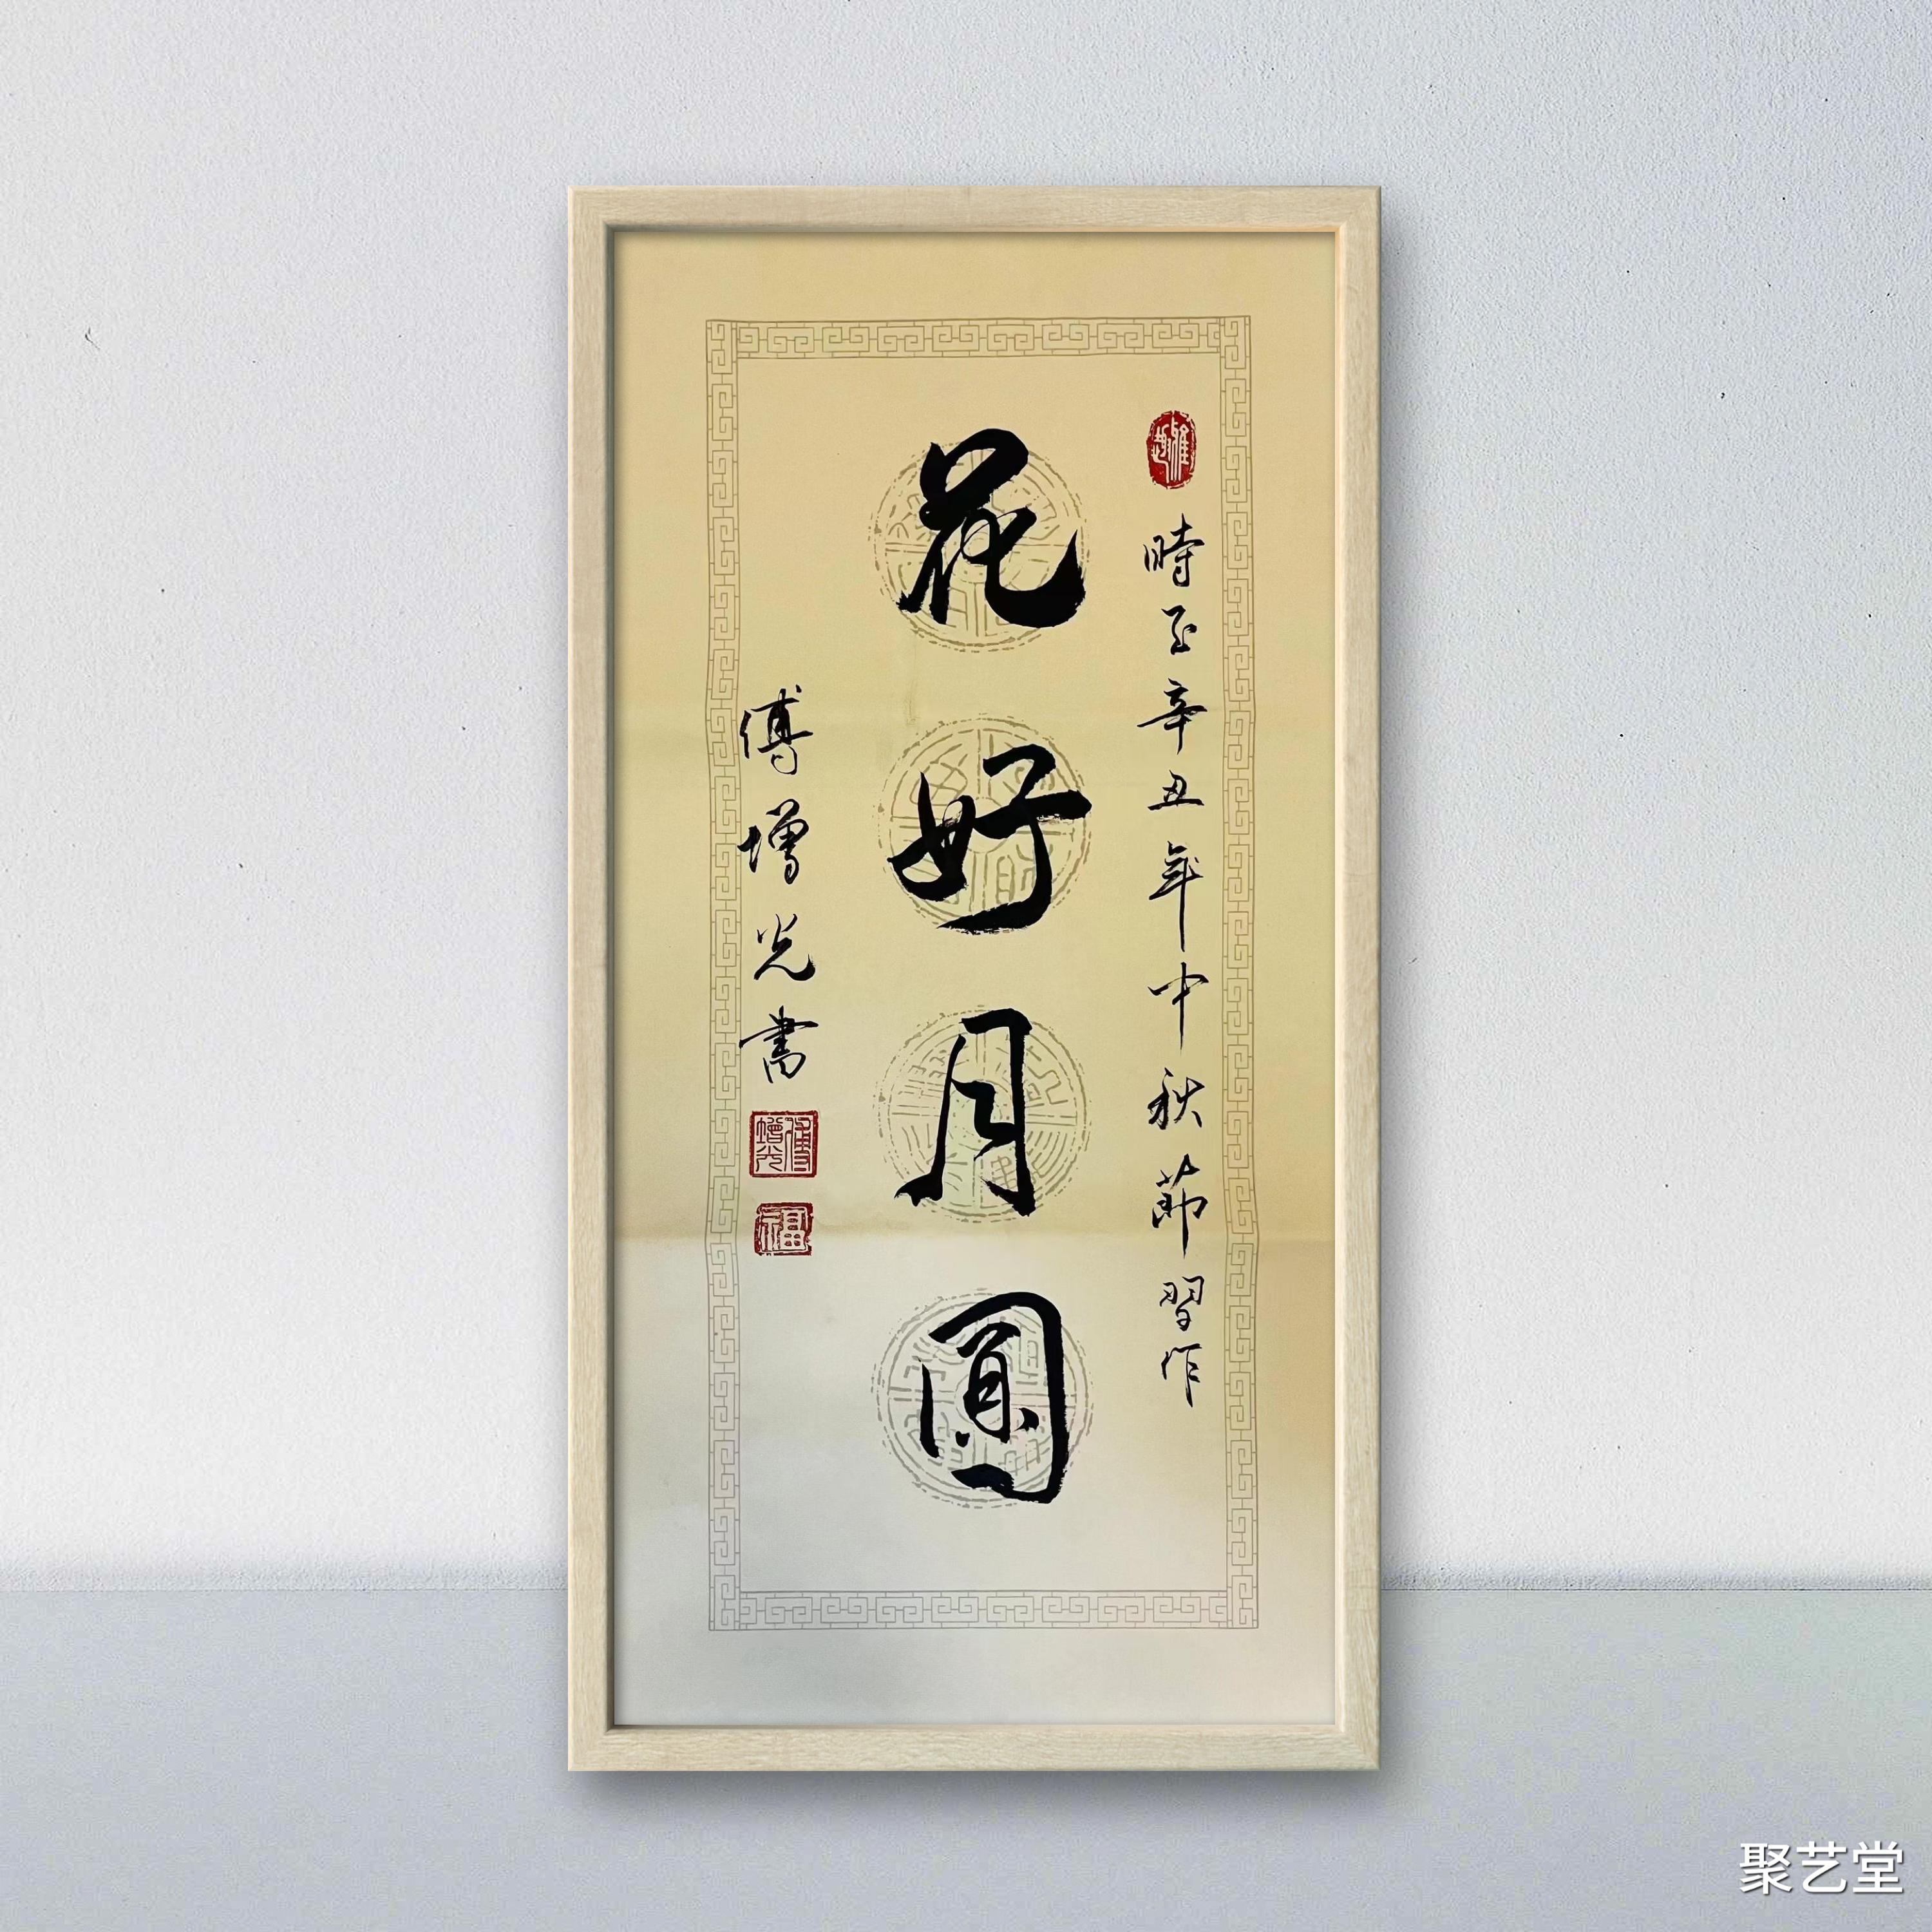 時至辛丑年中秋節習作
花好月圓
傅增光書
傅增光
福
聚艺堂